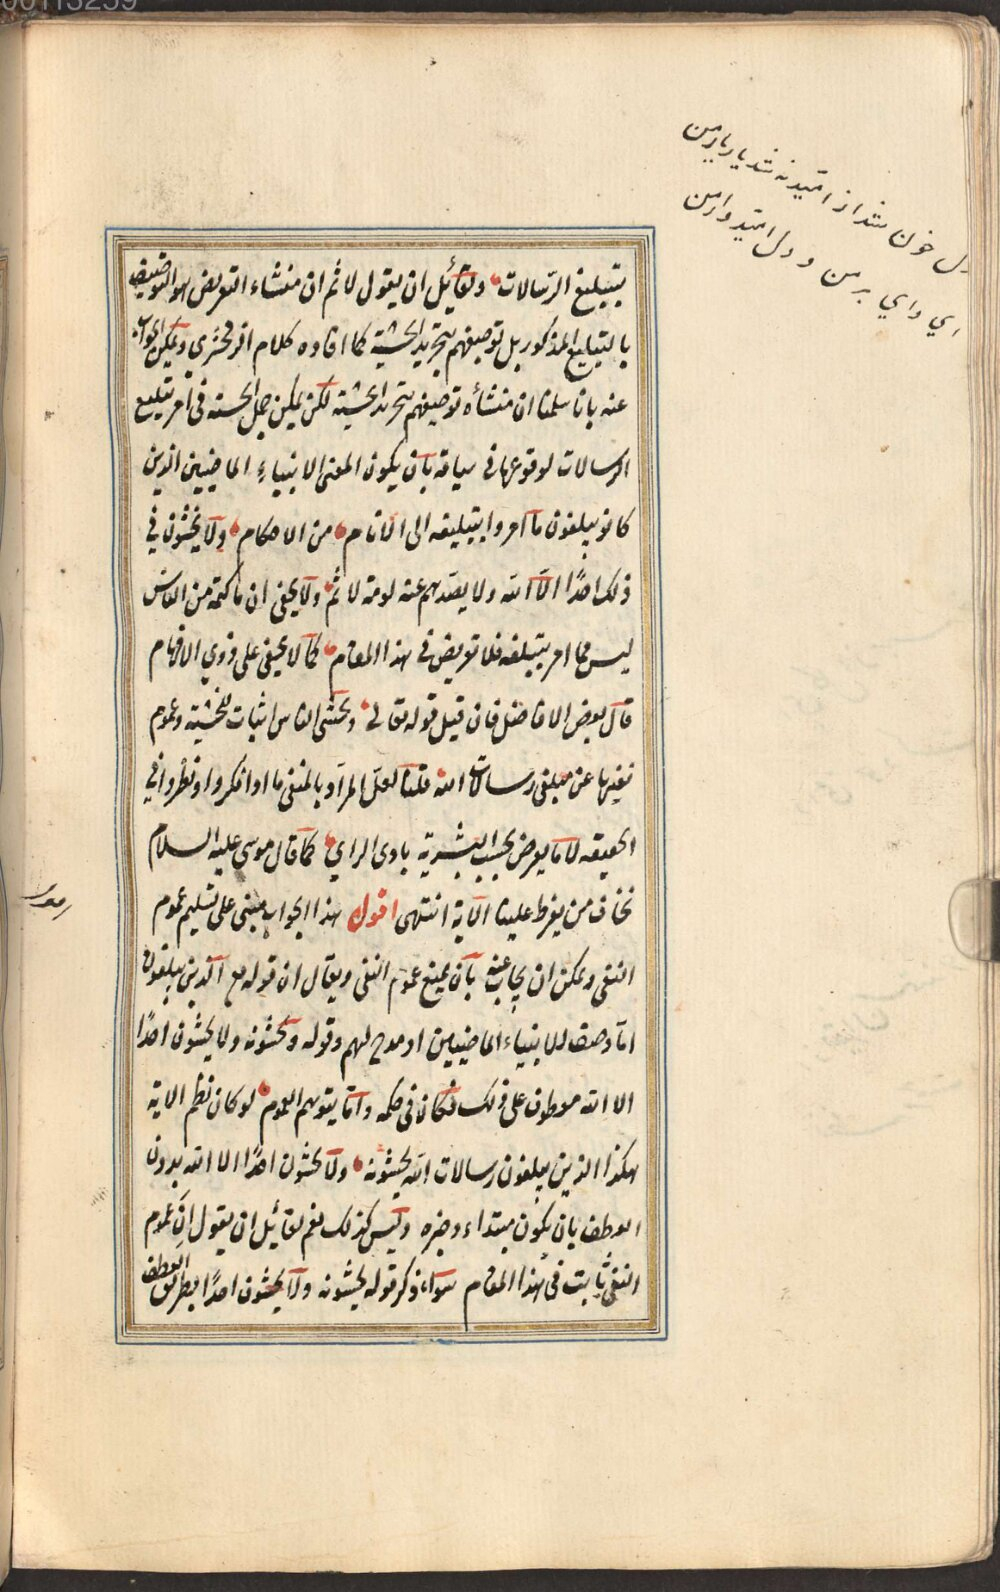 دل خون شد از امید نه شد یار یار من
ای وای بر من و دل امیدوار من
بتبلیغ الرسالات ولقائل ان یقول لا ثم ان منشاء التعریض هو التوصیف
بالتبلیغ المذکور بل توصیفهم بتجرید الخشیة کما افاده کلام الزمخشری ویمکن الجواب
عنه بانا سلمنا ان منشأه توصیفهم بتجرید الخشیة لکن یمکن حمل الخشیة فی امر تبلیغ
الرسالات لوقوعها فی سیاقه بان یکون المعنی الانبیاء الماضیین الذین
کانو یبلغون ما امروا بتبلیغه الی الانام من الاحکام ولا یخشون فی
ذلک احدًا الا الله ولا یصدهم عنه لومة لائم ولا یخفی ان ما کتمه من الناس
لیس مما امر بتبلیغه فلا تعریض فی هذا المقام کما لا یخفی علی ذوی الافهام
قال بعض الافاضل فان قیل قوله تعالی وتخشی الناس اثبات للخشیة وعموم
نفیها عن مبلغی رسالات الله قلنا لعل المراد بالمنفی ما اذا فکروا ونظروا فی
الحقیقه لا ما یعرض بحسب البشریة بادی الرای کما قال موسی علیه السلام
نخاف من یفرط علینا الآیة انتهی اقول هذا الجواب مبنی علی تسلیم عموم
النفی ویمکن ان یجاب عنه بان یمنع عموم النفی ویقال ان قوله مع الذین یبلغون
اما وصف للانبیاء الماضیین او مدح لهم وقوله ویخشونه ولا یخشون احدًا
الا الله معطوف علی ذلک فکان فی حکمه وانما یتوهم العموم لو کان نظم الایة
هکذا الذین یبلغون رسالات الله یخشونه ولا یخشون احدًا الا الله بدون
العطف بان یکون مبتداء وخبره ولیس کذلک نعم لقائل ان یقول ان عموم
النفی ثابت فی هذا المقام سواء ذکر قوله یخشونه ولا یخشون احدًا بطریق العطف